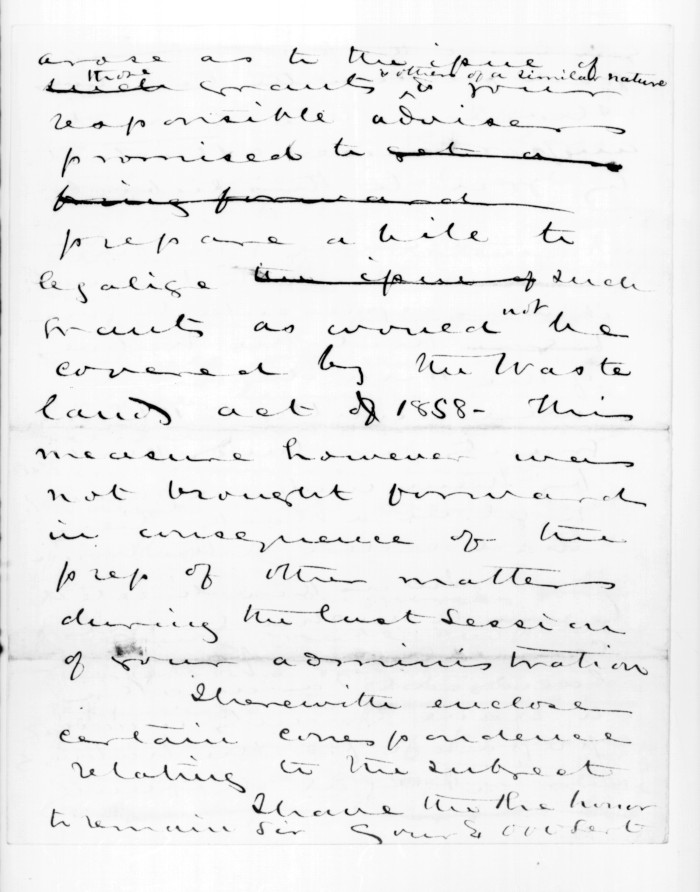 arose as to the issue of
such those grants & others of a similar nature & your
responsible advisers
promised to get a
bring forward
prepare a bill to
legalise the issue of such
grants as would not be
covered by the Waste
lands act of 1858 - This
measure however was
not brought forward
in consequence of the
press of other matters
during the last Session
of your administration
I herewith enclose
certain correspondence
relating to the subject
I have the the honor
to remain Sir Your